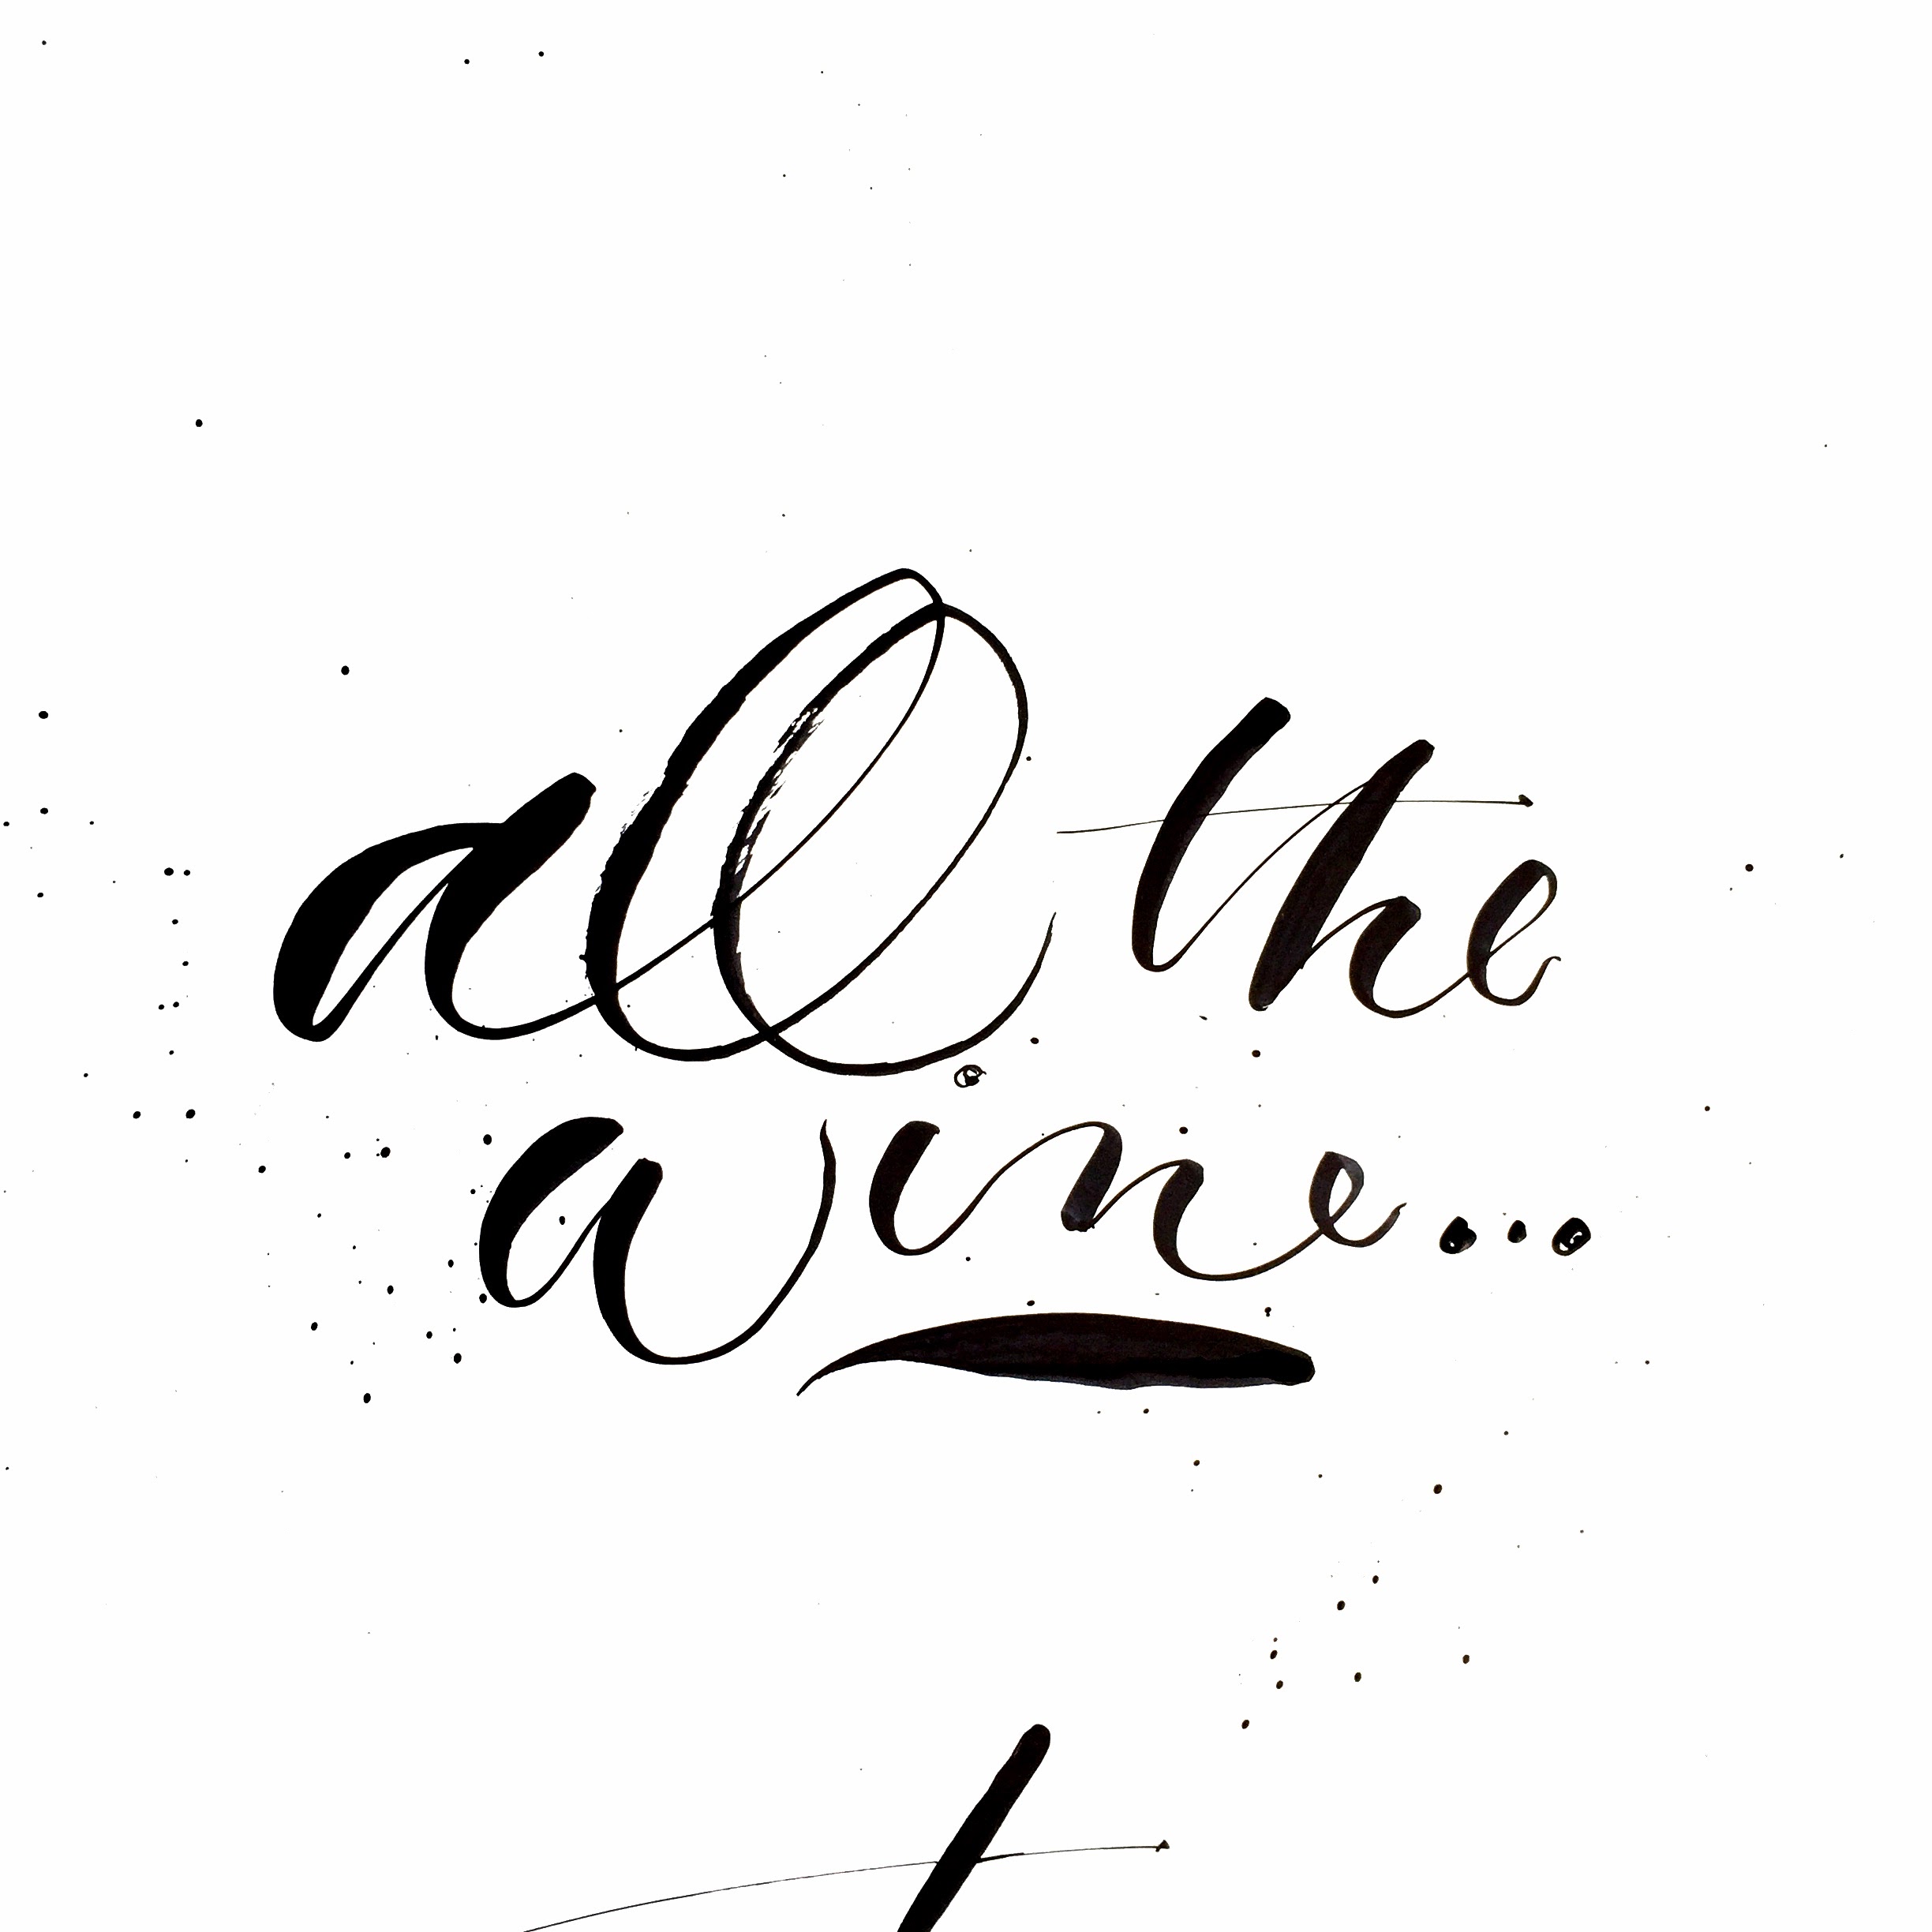 all the
wine...